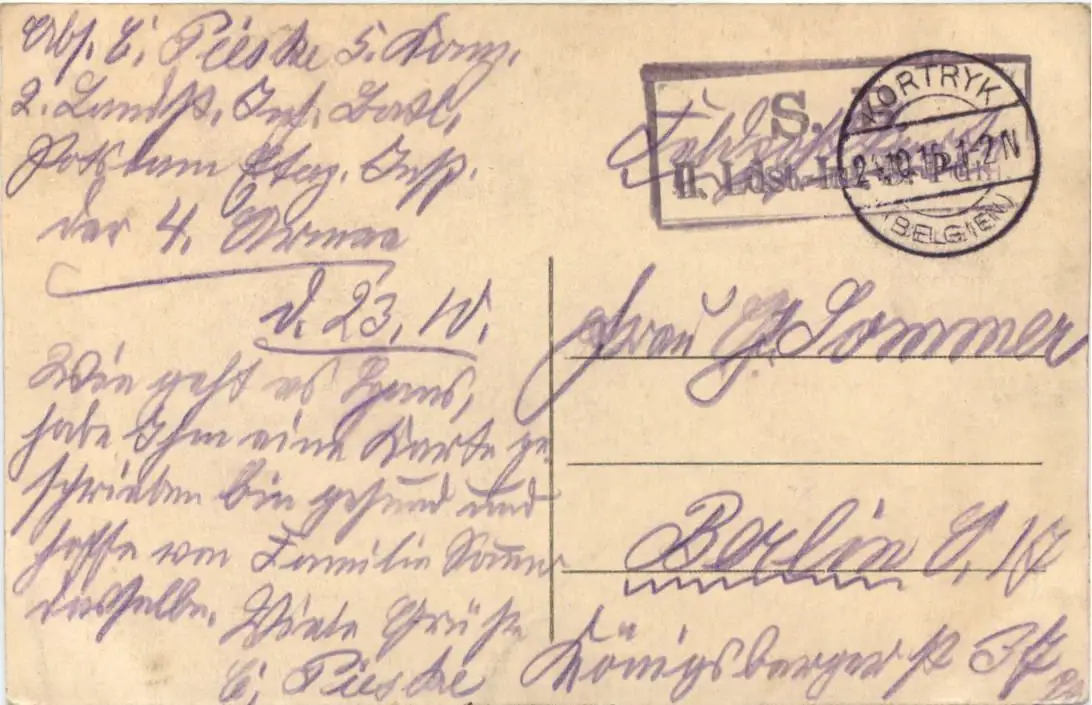 Abs. E. Pieske 5. Komp.
2. Landst. Inf. Batl.
Potsdam Etap. Insp.
der 4. Armee
d. 23. 10.
Wie geht es Hans,
habe Ihm eine Karte ge
schrieben bin gesund und
hoffe von Familie Sommer
dasselbe. Viele Grüße
E. Pieske
S. B.
II. Ldst.-Inf.
Feldpostkarte
KORTRYK
10.15 1-2N
(BELGIEN)
Frau G. Sommer
Berlin O. 17
Königsberger st 37